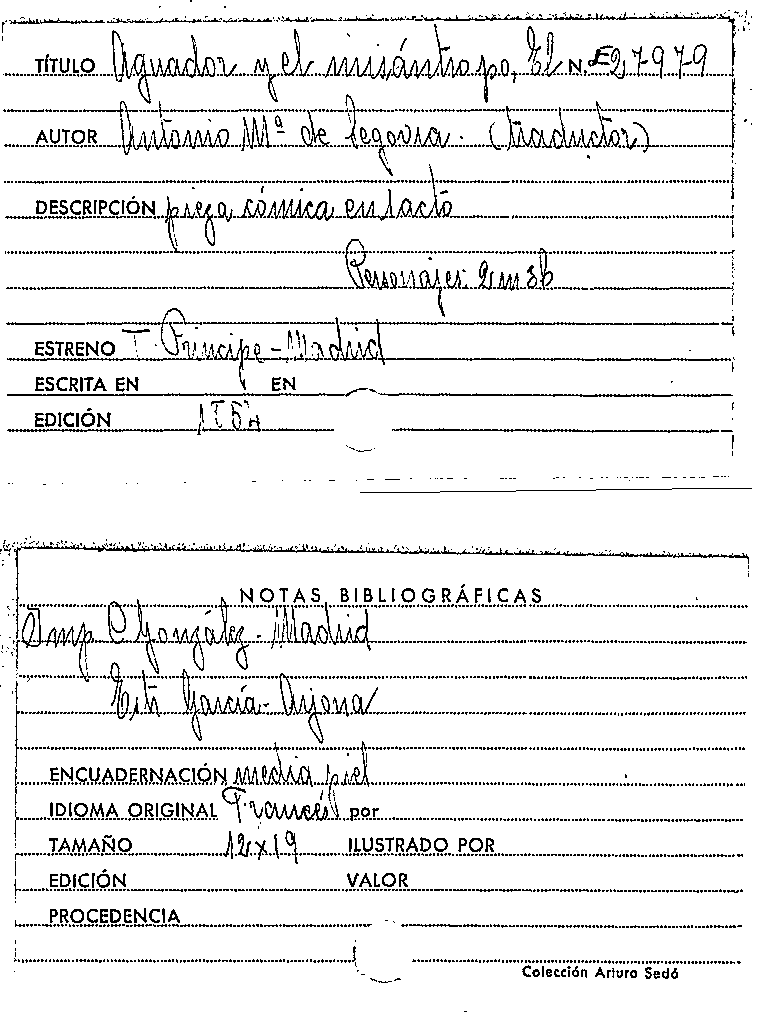 TÍTULO Aguador y el misántropo, El N. E27979
AUTOR Antonio Mª de Segovia. (traductor)
DESCRIPCIÓN pieza cómica en 1 acto
Personajes: 2m 3h
ESTRENO T. Príncipe - Madrid
ESCRITA EN EN
EDICIÓN 1854
NOTAS BIBLIOGRÁFICAS
Imp. C González - Madrid
Estr García - Arjona
ENCUADERNACIÓN media piel
IDIOMA ORIGINAL Francés por
TAMAÑO 12x19 ILUSTRADO POR
EDICIÓN VALOR
PROCEDENCIA
Colección Arturo Sedó